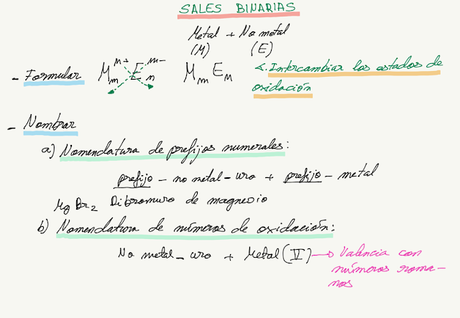 SALES BINARIAS
Metal + No metal
(M) (E)
- Formular Mᵐ⁺ Eⁿ⁻ MₘEₙ
Intercambiar los estados de
oxidación
- Nombrar
a) Nomenclatura de prefijos numerales:
prefijo - no metal - uro + prefijo - metal
MgBr₂ Dibromuro de magnesio
b) Nomenclatura de números de oxidación:
No metal - uro + Metal (V) → Valencia con
números roma-
nos